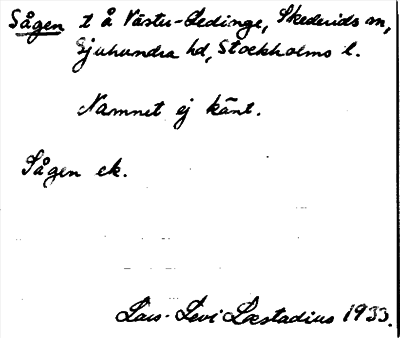 Sågen t å Väster-Ledinge, Skederids sn,
Sjuhundra hd, Stockholms l.
Namnet ej känt.
Sågen ek.
Lars-Levi Læstadius 1933.